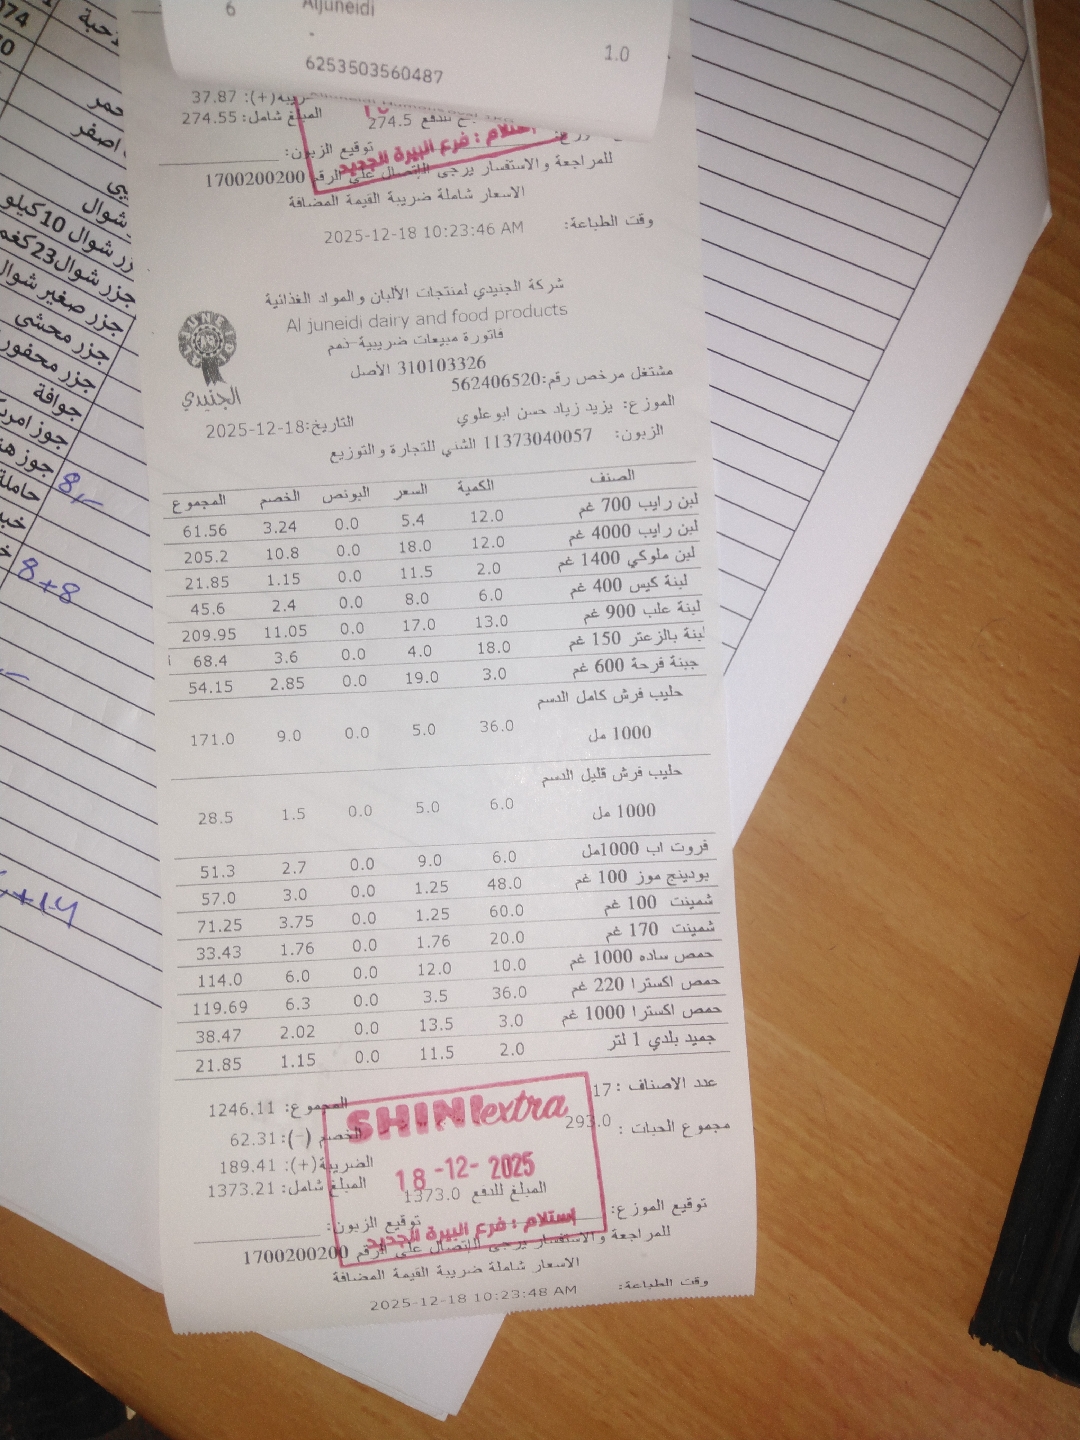 6 Aljuneidi
1.0
6253503560487
37.87 :(+)
274.55 :المبلغ شامل
274.5 للدفع
توقيع الزبون:
استلام : فرع البيرة الجديد
للمراجعة والاستفسار يرجى الإتصال على الرقم 1700200200
الاسعار شاملة ضريبة القيمة المضافة
وقت الطباعة: 2025-12-18 10:23:46 AM
شركة الجنيدي لمنتجات الألبان والمواد الغذائية
Al juneidi dairy and food products
فاتورة مبيعات ضريبية-ذمم
310103326 الأصل
مشتغل مرخص رقم:562406520
الجنيدي
الموزع: يزيد زياد حسن ابوعلوي
التاريخ:2025-12-18
الزبون: 11373040057 الشني للتجارة والتوزيع
الصنف الكمية السعر البونص الخصم المجموع
لبن رايب 700 غم 12.0 5.4 0.0 3.24 61.56
لبن رايب 4000 غم 12.0 18.0 0.0 10.8 205.2
لبن ملوكي 1400 غم 2.0 11.5 0.0 1.15 21.85
لبنة كيس 400 غم 6.0 8.0 0.0 2.4 45.6
لبنة علب 900 غم 13.0 17.0 0.0 11.05 209.95
لبنة بالزعتر 150 غم 18.0 4.0 0.0 3.6 68.4
جبنة فرحة 600 غم 3.0 19.0 0.0 2.85 54.15
حليب فرش كامل الدسم
1000 مل 36.0 5.0 0.0 9.0 171.0
حليب فرش قليل الدسم
1000 مل 6.0 5.0 0.0 1.5 28.5
فروت اب 1000مل 6.0 9.0 0.0 2.7 51.3
بودينج موز 100 غم 48.0 1.25 0.0 3.0 57.0
شمينت 100 غم 60.0 1.25 0.0 3.75 71.25
شمينت 170 غم 20.0 1.76 0.0 1.76 33.43
حمص ساده 1000 غم 10.0 12.0 0.0 6.0 114.0
حمص اكسترا 220 غم 36.0 3.5 0.0 6.3 119.69
حمص اكسترا 1000 غم 3.0 13.5 0.0 2.02 38.47
جميد بلدي 1 لتر 2.0 11.5 0.0 1.15 21.85
عدد الاصناف : 17
المجموع: 1246.11
SHINI extra
مجموع الحبات : 293.0
الخصم (-): 62.31
الضريبة(+): 189.41
18-12-2025
المبلغ للدفع 1373.0
المبلغ شامل: 1373.21
توقيع الموزع:
توقيع الزبون:
استلام : فرع البيرة الجديد
للمراجعة والاستفسار يرجى الإتصال على الرقم 1700200200
الاسعار شاملة ضريبة القيمة المضافة
وقت الطباعة: 2025-12-18 10:23:48 AM
074
حمر
اصفر
شوال
زر شوال 10كيلو
جزر شوال23كغم
جزر صغير شوال
جزر محشي
جزر محفور
جوافة
جوز امر
جوز ه
حاملة
8,-
8+8
+14